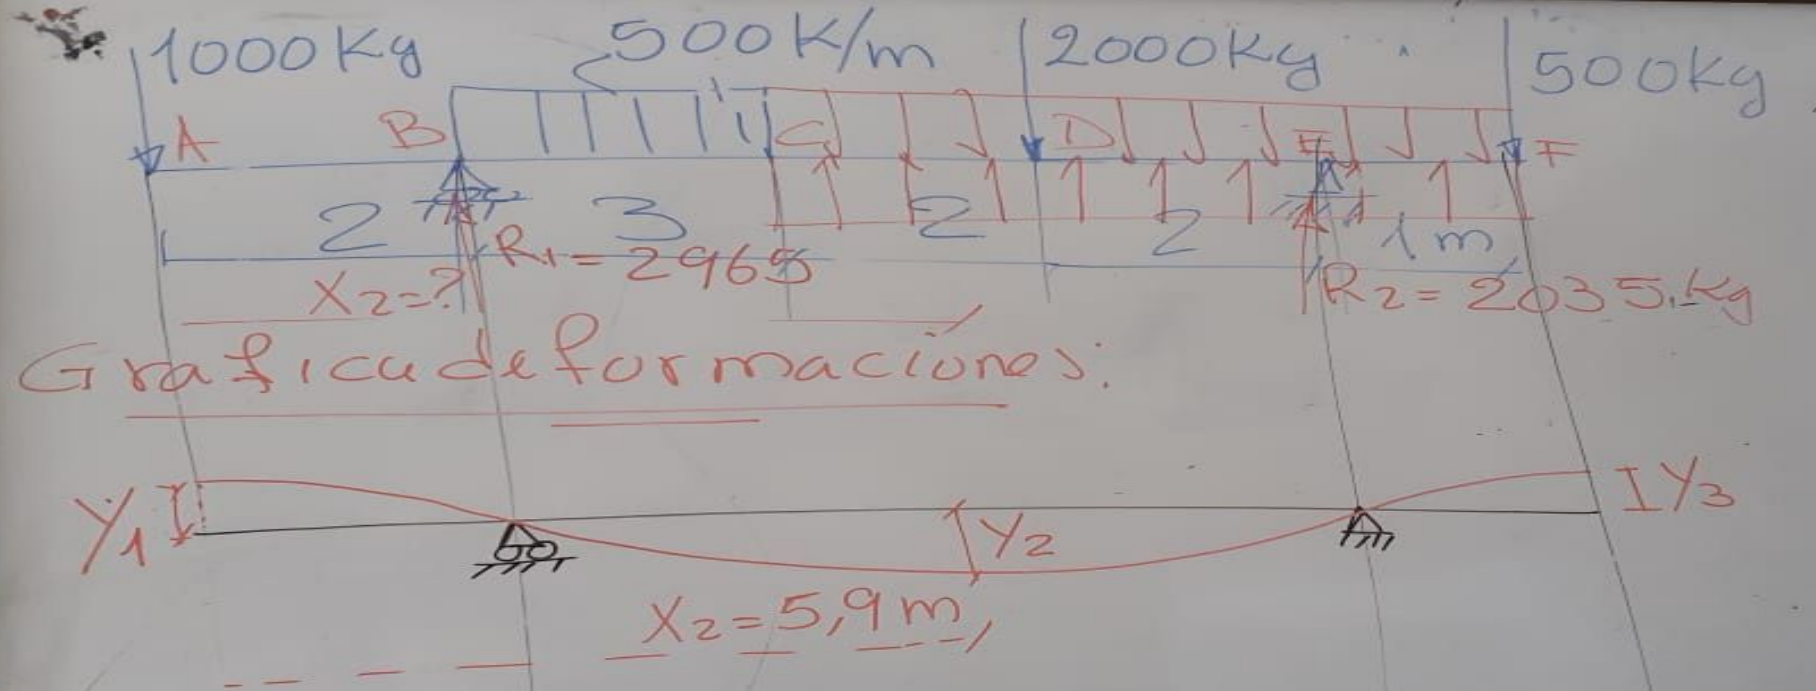 1000Kg 500K/m 2000Kg 500Kg
A B C D E F
2 3 2 2 1m
R1=2965
X2=? R2=2035.Kg
Grafica deformaciónes:
Y1 Y2 Y3
X2=5,9m